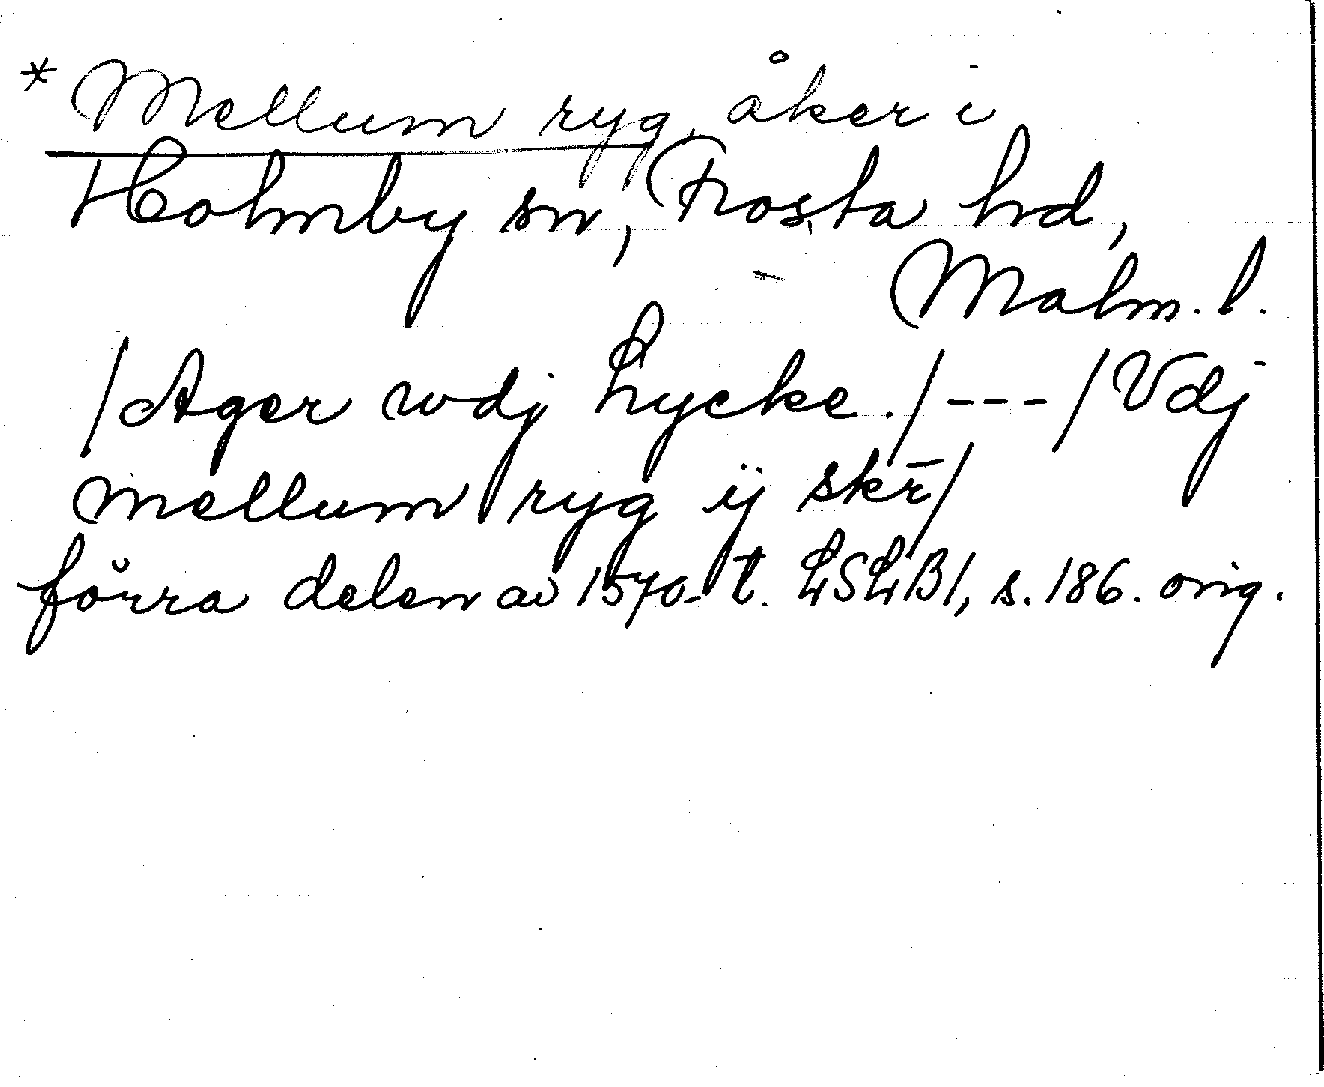 * Mellum ryg, åker i
Holmby sn, Frosta hd,
Malm. l.
/Ager wdj Lycke./---/Vdj
mellum ryg ij skr̄/
förra delen av 1570-t. LSLB1, s. 186. orig.